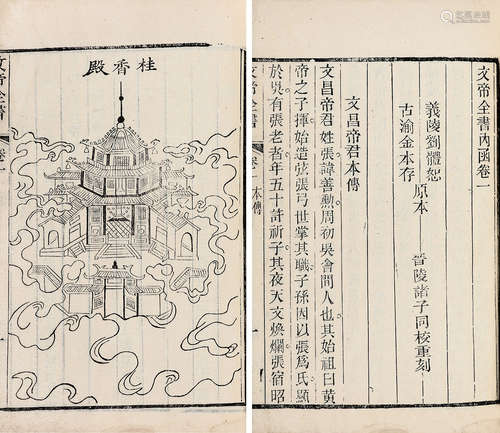 文帝全書內函卷一
義陵劉體恕原本
古渝金本存
晉陵諸子同校重刻
文昌帝君本傳
文昌帝君姓張諱善勳周初吳會間人也其始祖曰黃
帝之子揮始造弦張弓世掌其職子孫因以張爲氏顯
於吳有張老者年五十許祈子其夜天文煥爛張宿昭
文帝全書 卷一 本傳 一
桂香殿
文帝全書 卷一